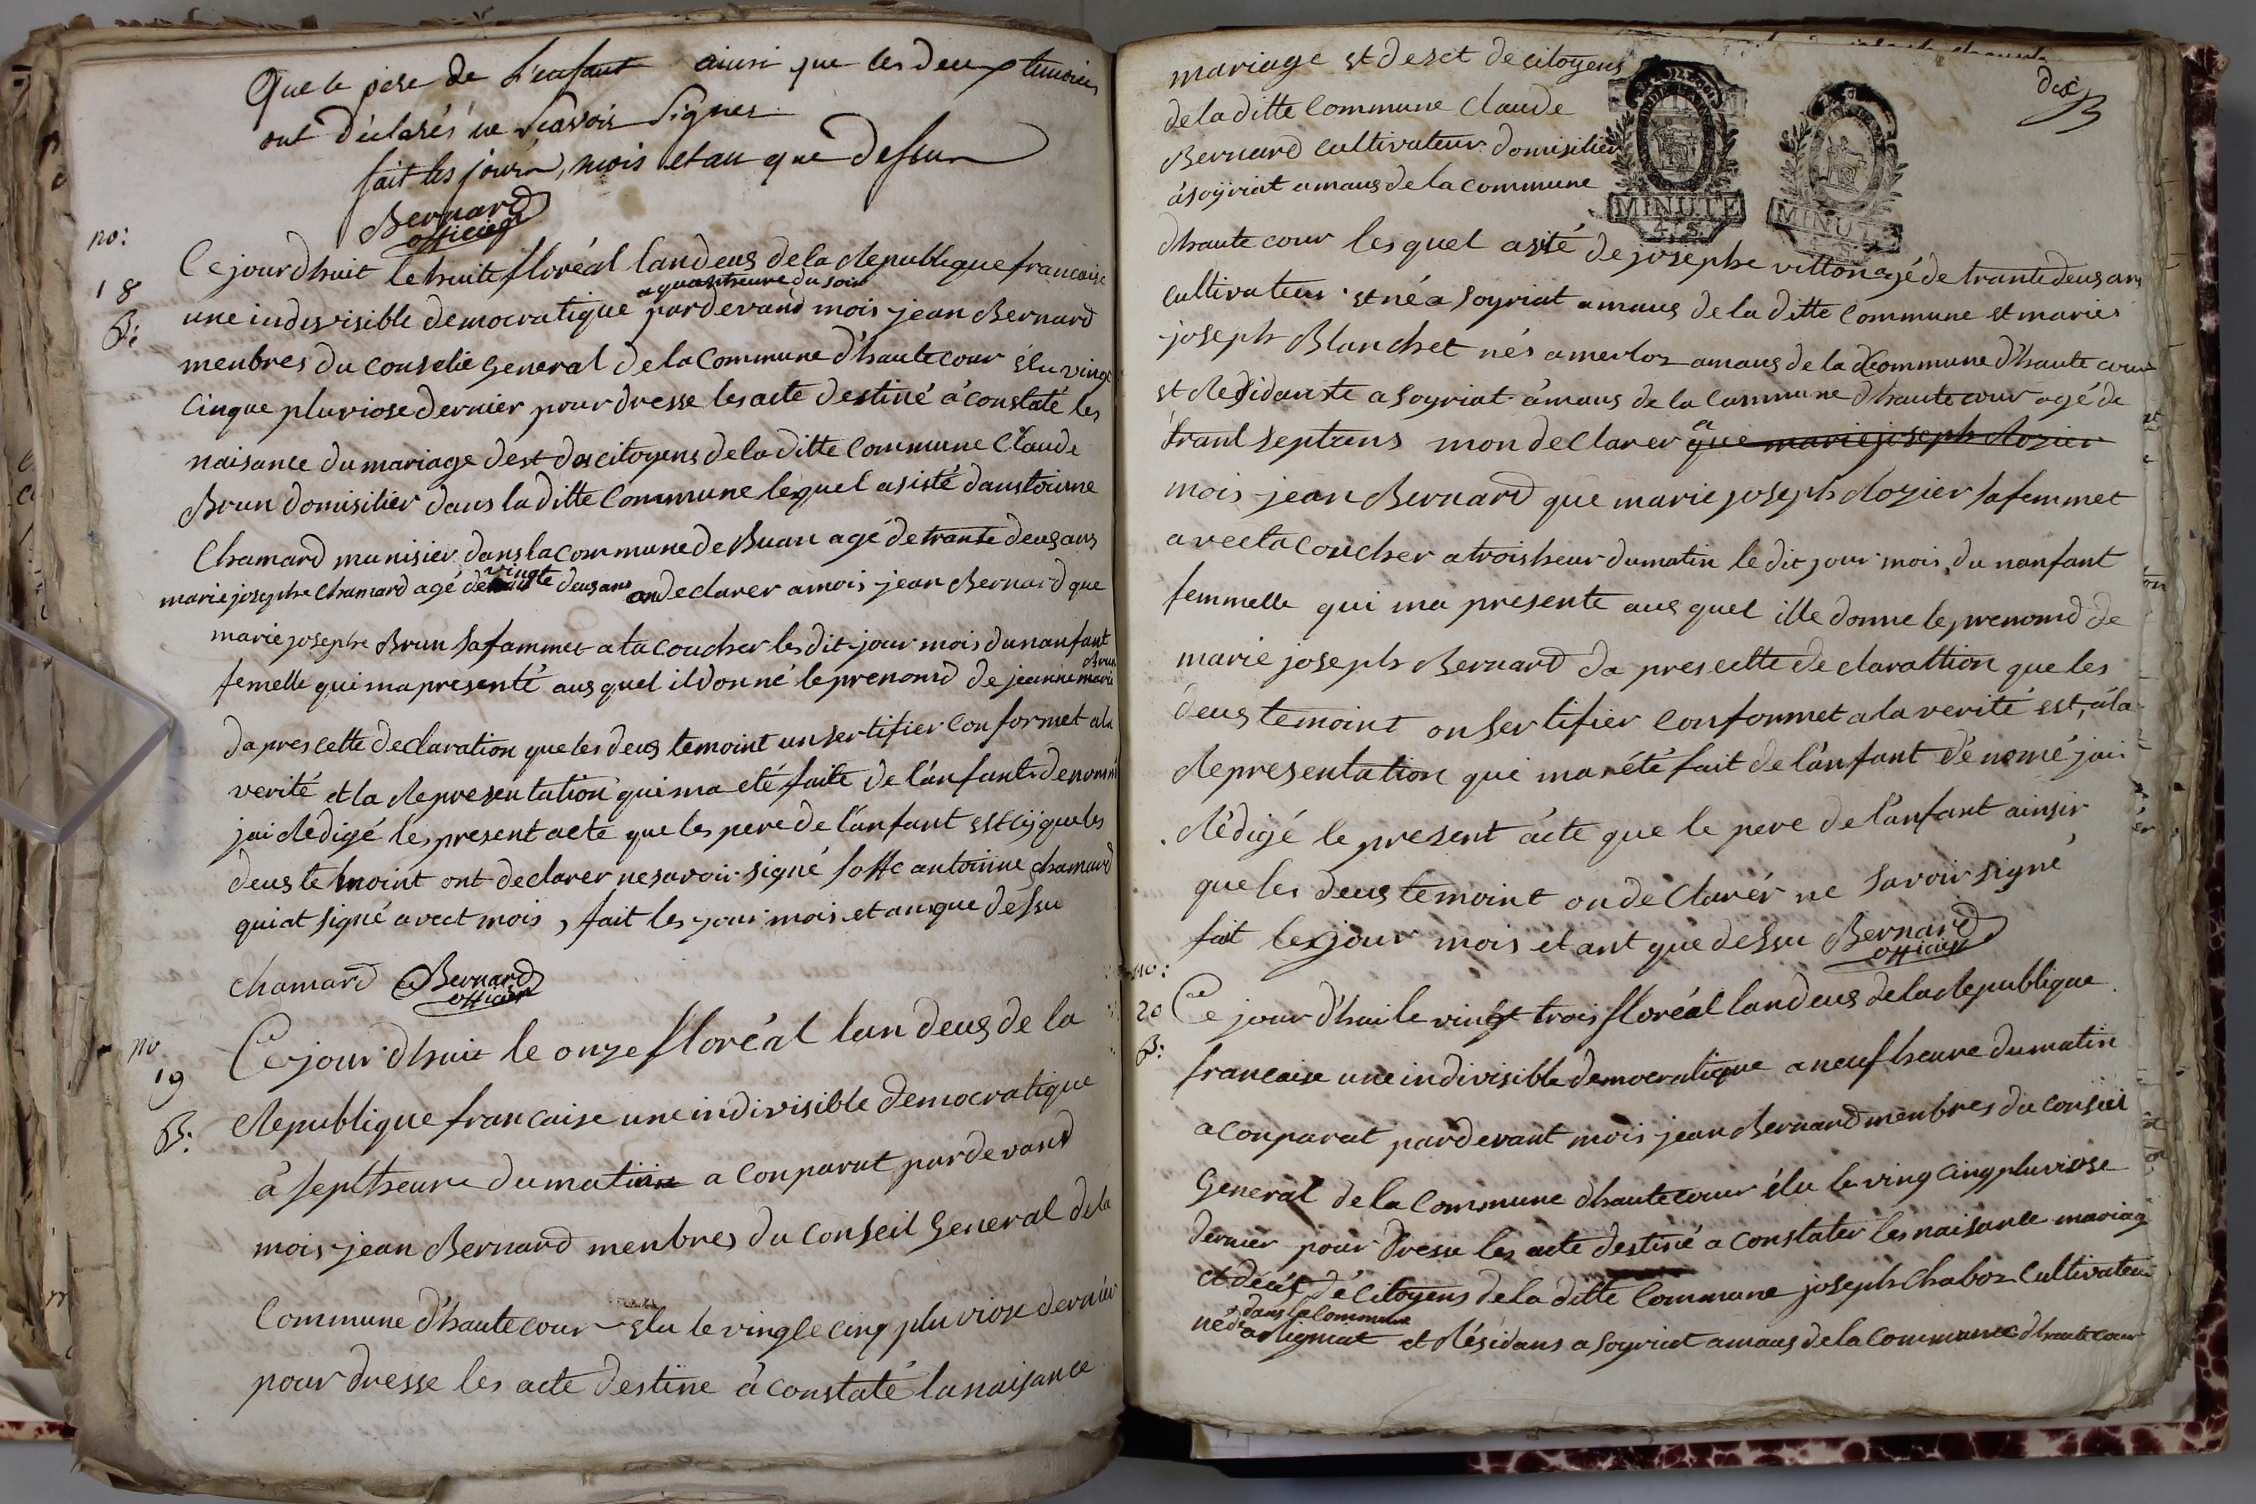 Que le pere de l'enfant ainsi que les deux temoins
ont déclarés ne Scavoir Signer
fait les jours, mois et an que dessus
Bernard
officier
no:
18
B:
Ce jourdhuit le huite floréal landeus de la Republique francaise
a quatrheure du soir
une indisvisible democratique pardevand mois jean Bernard
menbres du conselie General de la Commune d'hautecour élu vingt
Cinque pluviose dernier pour dresse les acte destiné à constaté les
naisance du mariage dest des citoyens de la ditte Commune Claude
Brun domisilier dans la ditte Commune lequel asisté dantoinne
Chamard munisier dans la commune de Buan agé de trante deus ans
vingt
marie josephe Chamard agé de deus ans on declarer a mois jean Bernard que
marie josephe Brun sa fammet a la coucher les dit jour mois dunanfant
Brun
femelle qui ma presenté aus quel il donné le prenomd de jeanne marie
da pres cette declaration que les deus temoint un sertifier conformet a la
verité et la Representation qui ma eté faite de l'anfant denommé
jai Redigé les present acte que les pere de l'anfant est cij que les
deus temoint ont declarer ne savoir signé soffe antoinne chamard
qui at signé avect mois, fait les jour mois et an que dessu
chamard Bernard
officier
no
19
B:
Ce jour dhuit le onze floréal lan deus de la
Republique francaise une indivisible democratique
à septheure du matin a conparut pardevand
mois jean Bernard menbres du Conseil General de la
Commune d'hautecour elu le vingt cinq pluviose dernier
pour dresse les acte destine à constaté la naisance
dix
B
mariage et deset de citoyens
de la ditte Commune Claude
Bernard cultivateur domisilier
à soyriat amaus de la commune
MINUTE
MINUTE
dhaute cour lesquel asité de josephe villon agé de trante deus ans
cultivateur et né a Soyriat amaus de la ditte Commune et maries
joseph Blanchet nés a merloz amaus de la d Commune d'haute cour
et Residante a Soyriat àmaus de la Commune dhautecour agé de
trant septans mon declarer a que marie joseph Rozier
mois jean Bernard que marie joseph Rozier sa femmet
avecta coucher a trois heur du matin le dit jour mois du nanfant
femmelle qui ma presente aus quel ille donne le prenomd de
marie joseph Bernard da pres cette declarattion que les
deus temoint on sertifier conformet a la verité est, à la
Representation qui ma été fait de l'anfant dénomé jai
Rédigé le present àcte que le pere de l'anfant ainsir
que les deus temoint on declarér ne savoir signé
fait les jour mois et ant que dessu Bernard
officier
no:
20
B:
Ce jour d'hui le vingt trois floréal landeus de la Republique
francaise une indivisible democratique a neuf heure du matin
a conparut pardevant mois jean Bernard menbres du conseil
General de la Commune dhautecour élu le ving cinq pluviose
dernier pour dresse les acte destiné a constater les naisance mariag
et décét dé citoyens de la ditte Commune joseph Chaboz Cultivateur
dans la Commune
né de a Rigniat et Résidans a soyriat amaus de la Commune dhautecour